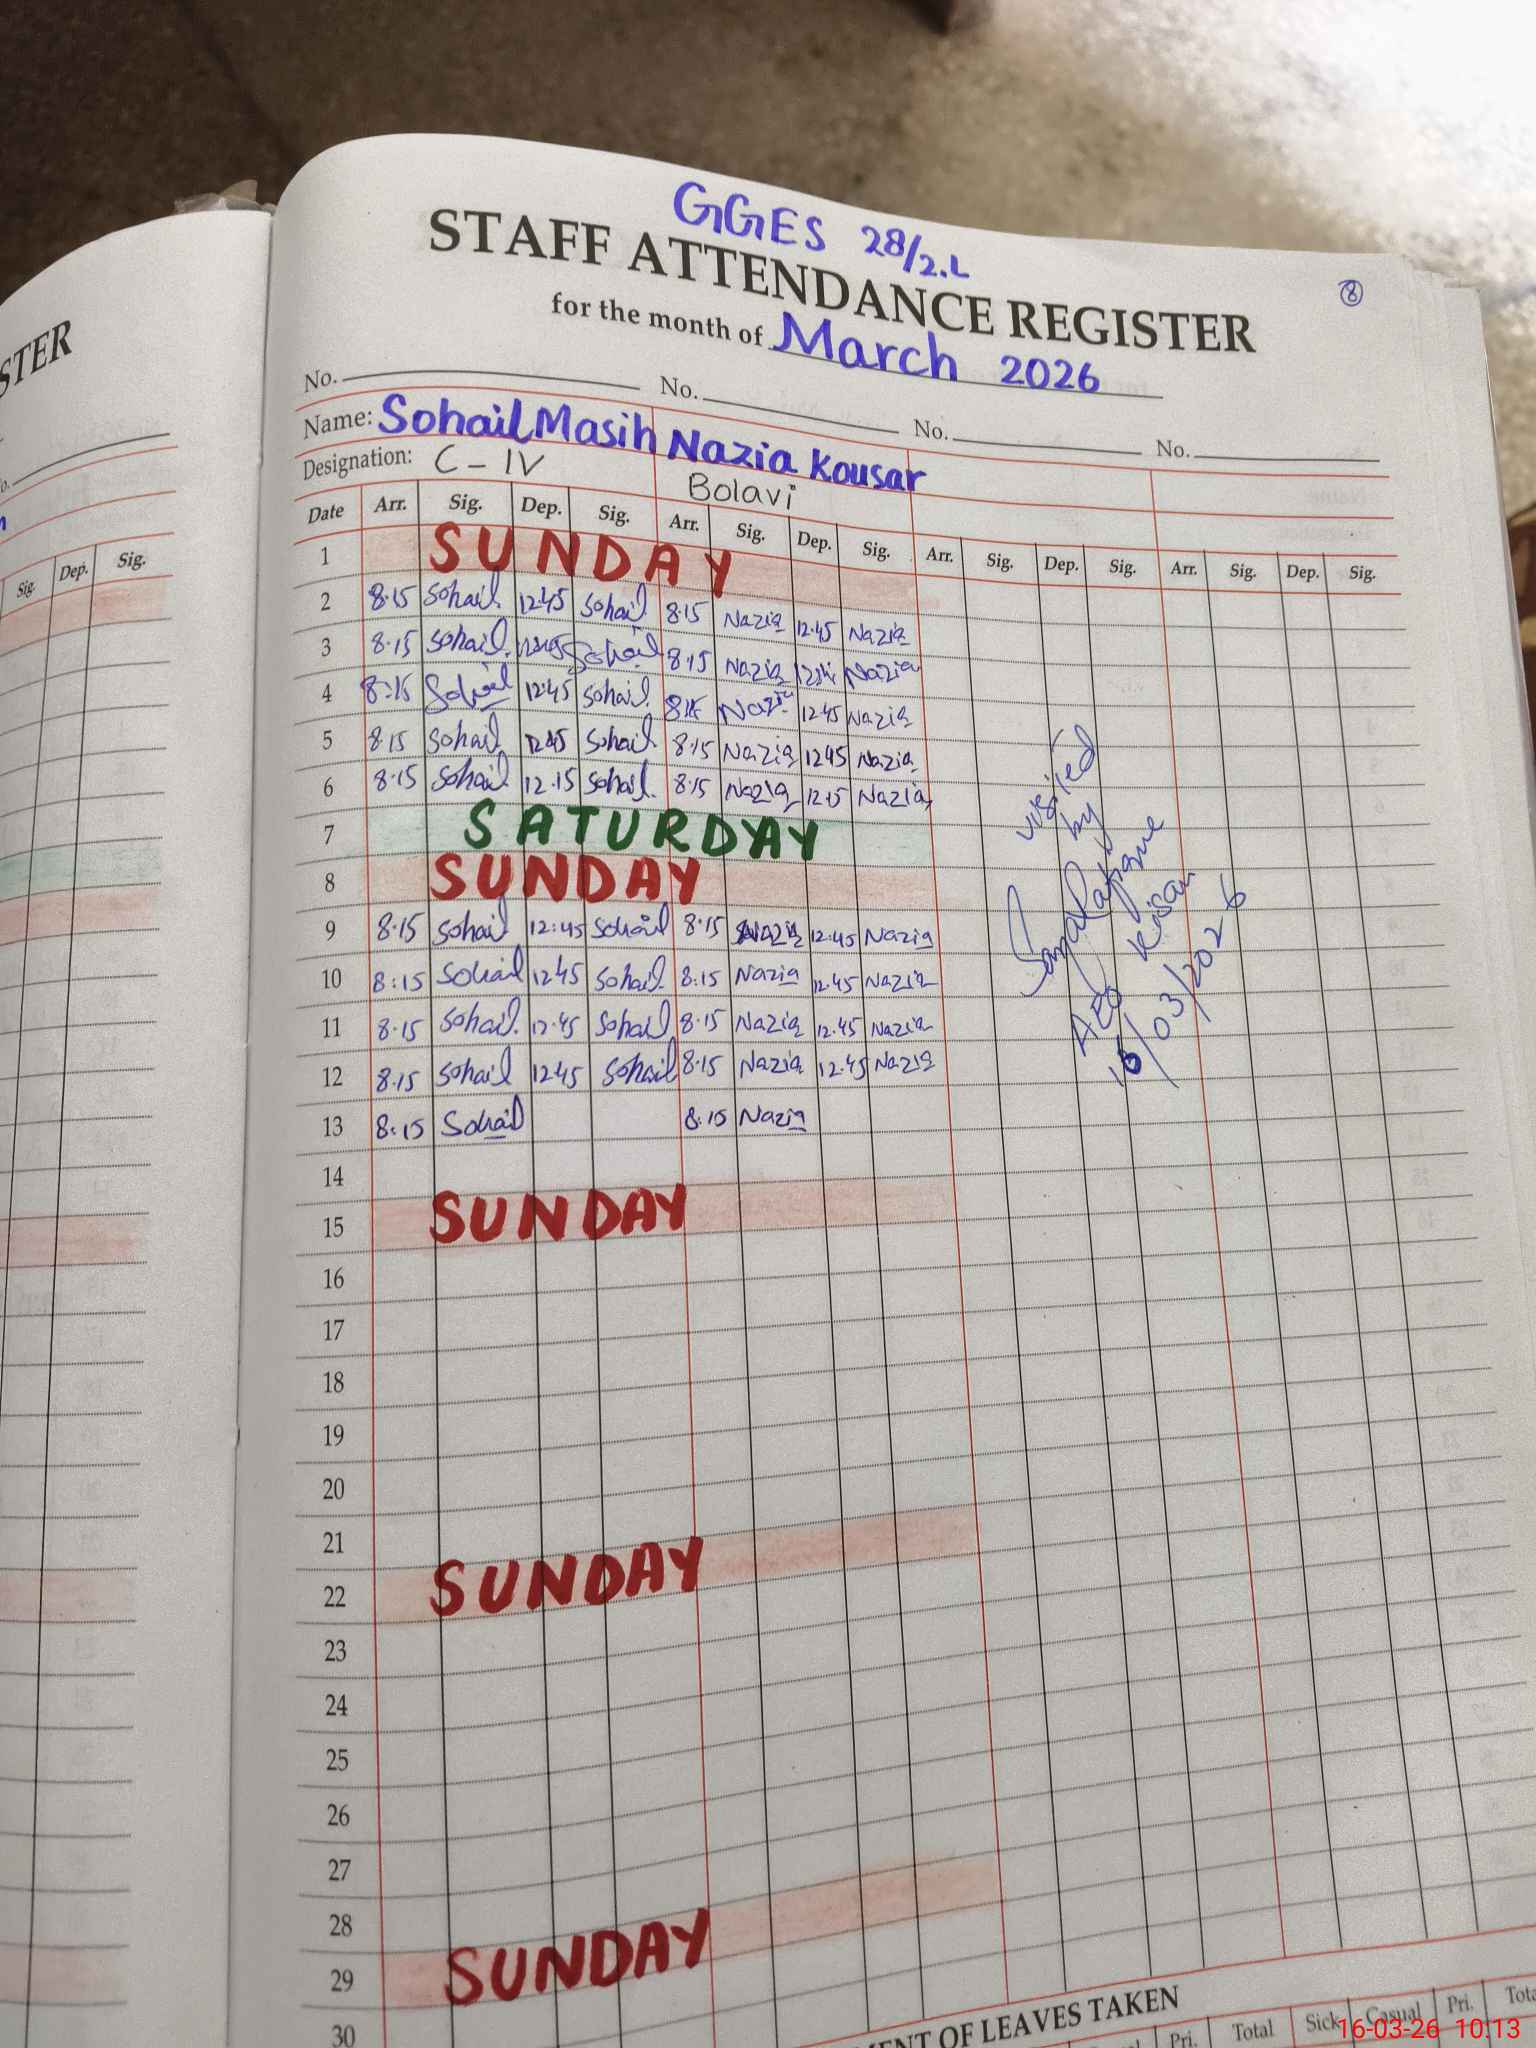 GGES 28/2.L
STAFF ATTENDANCE REGISTER
8
for the month of March 2026
No. No. No. No.
Name: Sohail Masih Nazia Kousar
Designation: C-IV Bolavi
Date Arr. Sig. Dep. Sig. Arr. Sig. Dep. Sig. Arr. Sig. Dep. Sig. Arr. Sig. Dep. Sig.
1 SUNDAY
2 8.15 Sohail 12.45 Sohail 8.15 Nazia 12.45 Nazia
3 8.15 Sohail Sohail 8.15 Nazia Nazia
4 8:15 Sohail 12.45 Sohail Nazia 12.45 Nazia
5 8.15 Sohail 12.45 Sohail 8.15 Nazia 12.45 Nazia
6 8.15 Sohail 12.15 Sohail 8.15 Nazia 12.15 Nazia
7 SATURDAY
8 SUNDAY
9 8.15 Sohail 12:45 Sohail 8.15 Nazia 12.45 Nazia
10 8:15 Sohail 12.45 Sohail 8.15 Nazia 12.45 Nazia
11 8.15 Sohail 12.45 Sohail 8.15 Nazia 12.45 Nazia
12 8.15 Sohail 12.45 Sohail 8.15 Nazia 12.45 Nazia
13 8:15 Sohail 8.15 Nazia
14
15 SUNDAY
16
17
18
19
20
21
22 SUNDAY
23
24
25
26
27
28
29 SUNDAY
30
visited
by
AEO
16/03/2026
STER
Sig. Dep. Sig.
MENT OF LEAVES TAKEN
Pri. Total Sick Casual Pri. Tota
16-03-26 10:13